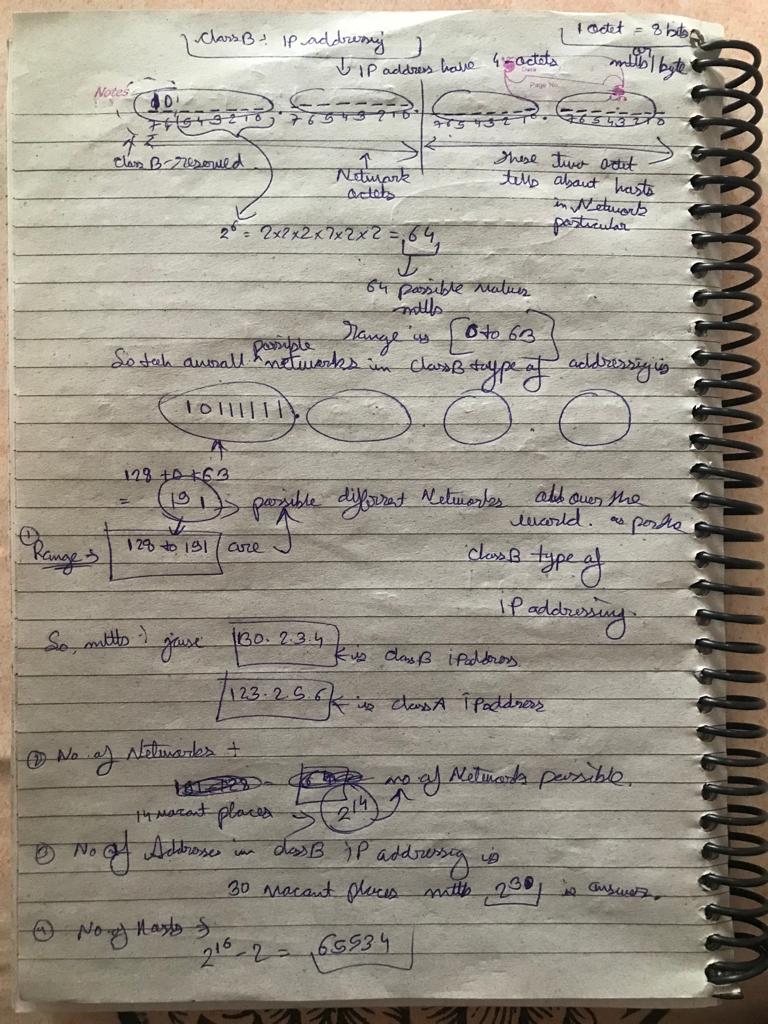 Class B : IP addressing
1 octet = 8 bits
or
mttb 1 byte
IP address have 4 octets
Notes
Page No.
10
7 6 5 4 3 2 1 0 . 7 6 5 4 3 2 1 0 . 7 6 5 4 3 2 1 0 . 7 6 5 4 3 2 1 0
Class B-reserved
Network
octets
These two octet
tells about hosts
in Network
particular
2^6 = 2x2x2x2x2x2 = 64
64 possible values
mttb
Range is 0 to 63
possible
So overall networks in class B type of addressing is
10111111 .
128 + 0 + 63
= 191 possible different Networks all over the
world. as per the
① Range → 128 to 191 are
class B type of
IP addressing.
So, mttb : jaise 130.2.3.4 is class B ip address
123.2.5.6 is class A ip address
② No. of Networks
no of Network possible.
14 vacant places 2^14
③ No of Address in class B IP addressing is
30 vacant places mttb 2^30 is answer.
④ No of Hosts
2^16 - 2 = 65534